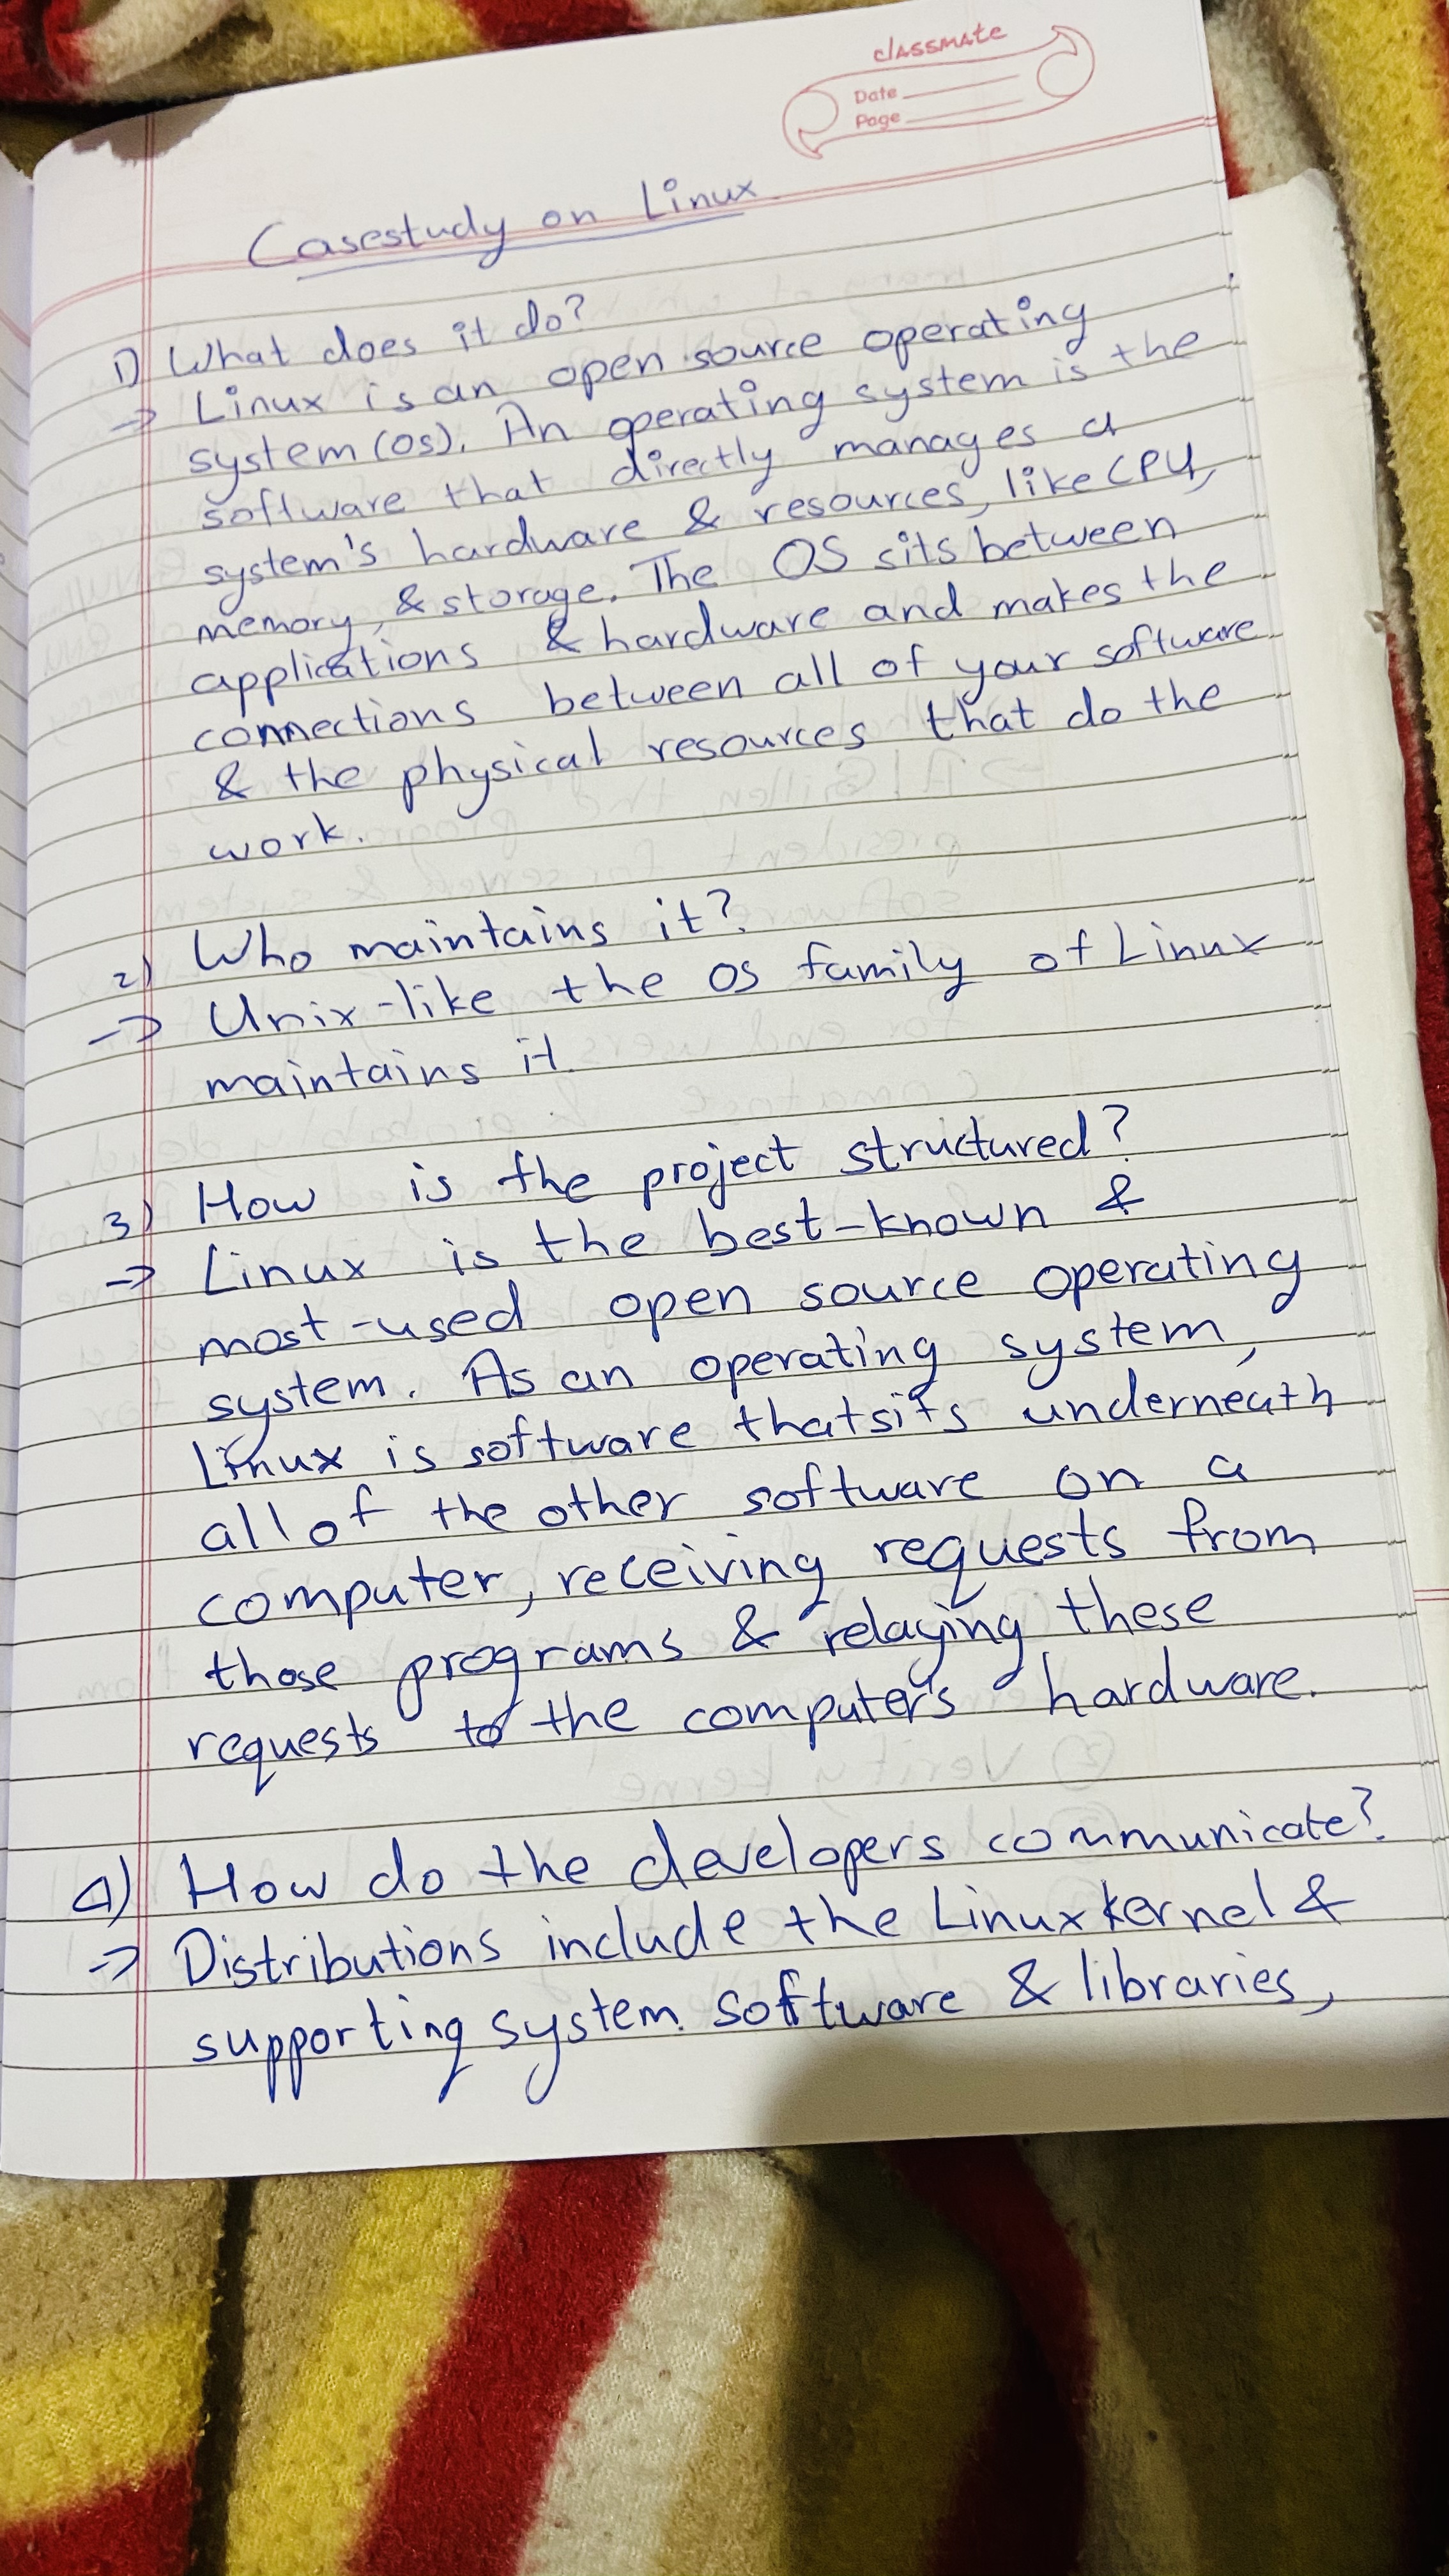 classmate
Date
Page
Casestudy on Linux
1) What does it do?
→ Linux is an open source operating
system (OS). An operating system is the
software that directly manages a
system's hardware & resources, like CPU,
memory, & storage. The OS sits between
applications & hardware and makes the
connections between all of your software
& the physical resources that do the
work.
2) Who maintains it?
→ Unix-like the OS family of Linux
maintains it.
3) How is the project structured?
→ Linux is the best-known &
most-used open source operating
system. As an operating system,
Linux is software that sits underneath
all of the other software on a
computer, receiving requests from
those programs & relaying these
requests to the computer's hardware.
4) How do the developers communicate?
→ Distributions include the Linux kernel &
supporting system software & libraries,